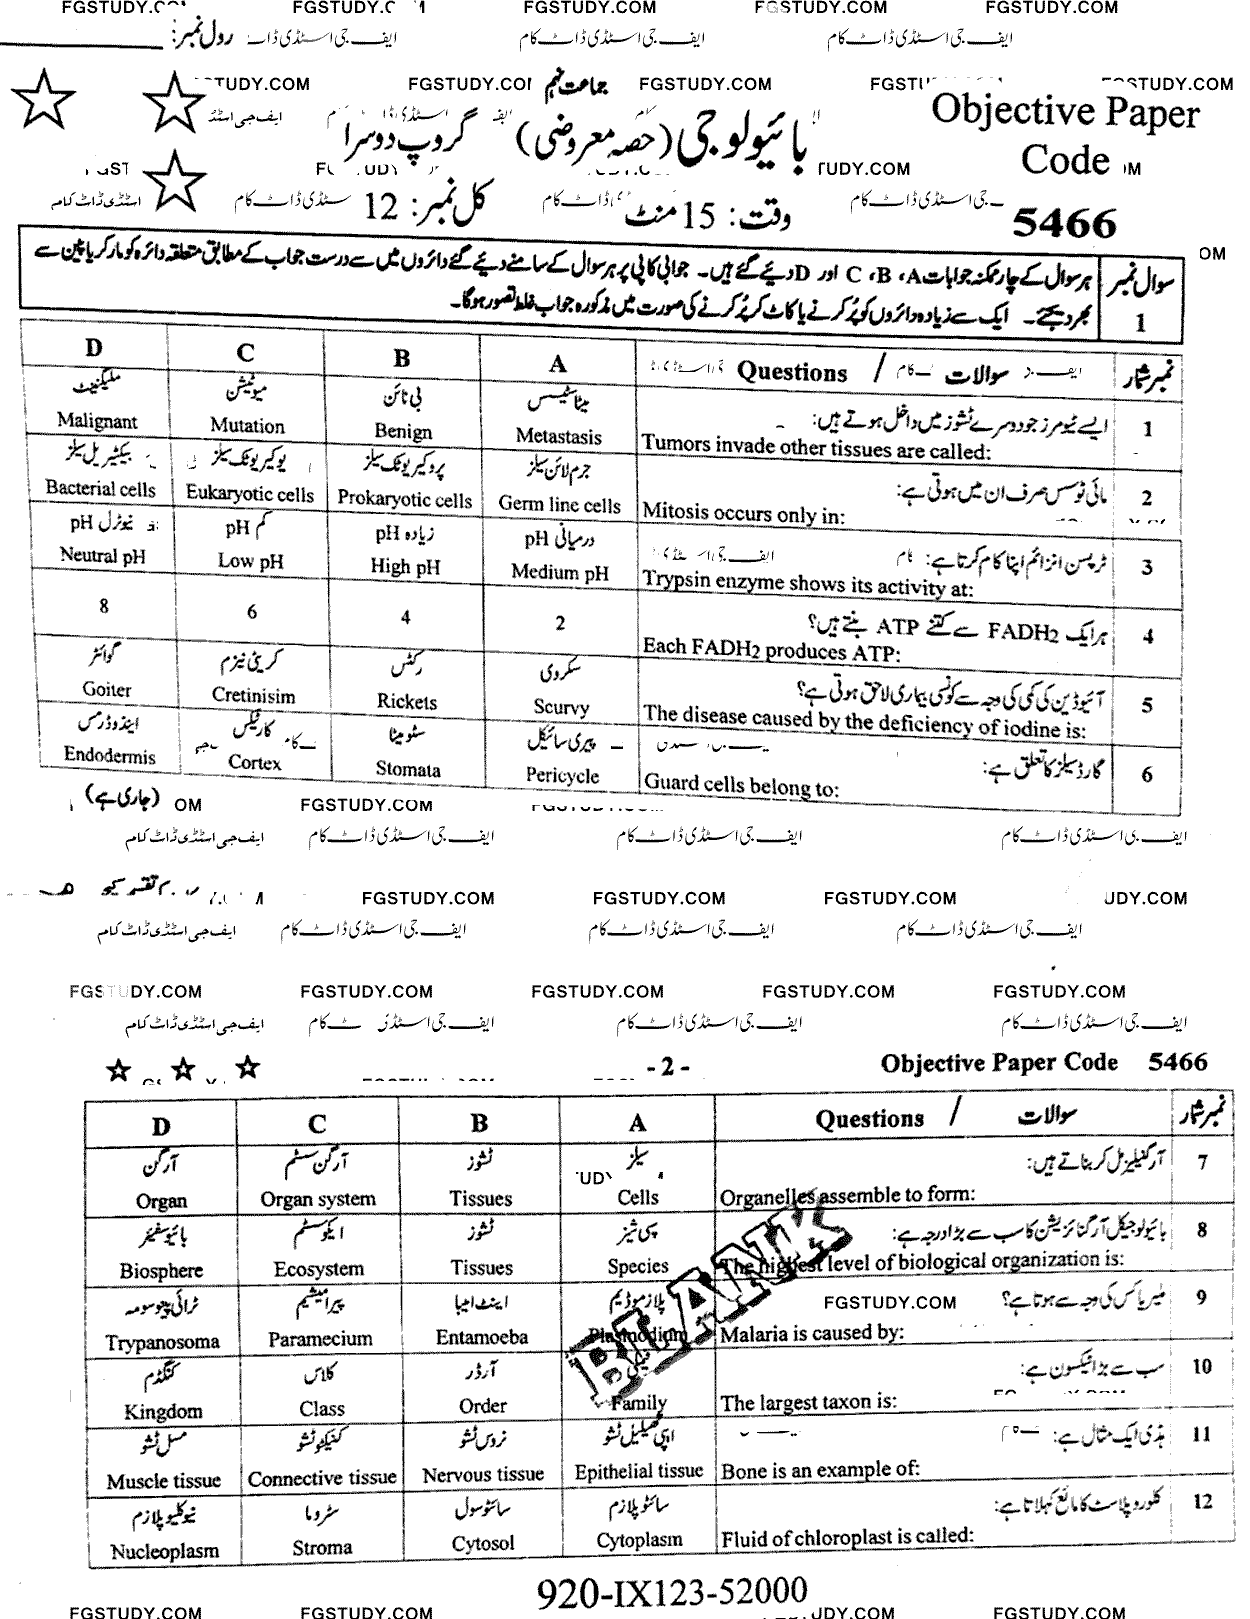 FGSTUDY.COM FGSTUDY.COM FGSTUDY.COM FGSTUDY.COM
رول نمبر: ایف جی اسٹڈی ڈاٹ کام ایف جی اسٹڈی ڈاٹ کام
جماعت نہم
FGSTUDY.COM
Objective Paper
Code
5466
بائیولوجی (حصہ معروضی) گروپ دوسرا
وقت: 15 منٹ کل نمبر: 12
سوال نمبر 1
ہر سوال کے چار ممکنہ جوابات A، B، C اور D دیئے گئے ہیں۔ جوابی کاپی پر ہر سوال کے سامنے دیئے گئے دائروں میں سے درست جواب کے مطابق متعلقہ دائرہ کو مارکر یا پین سے
بھر دیجئے۔ ایک سے زیادہ دائروں کو پُر کرنے یا کاٹ کر پُر کرنے کی صورت میں مذکورہ جواب غلط تصور ہوگا۔
D C B A Questions / سوالات نمبر شمار
ملیگنینٹ میوٹیشن بی نائن میٹاسٹیسس ایسے ٹیومرز جو دوسرے ٹشوز میں داخل ہوتے ہیں: 1
Malignant Mutation Benign Metastasis Tumors invade other tissues are called:
بیکٹیریل سیلز یوکیریوٹک سیلز پروکیریوٹک سیلز جرم لائن سیلز مائی ٹوسس صرف ان میں ہوتی ہے: 2
Bacterial cells Eukaryotic cells Prokaryotic cells Germ line cells Mitosis occurs only in:
نیوٹرل pH کم pH زیادہ pH درمیانی pH ٹرپسن انزائم اپنا کام کرتا ہے: 3
Neutral pH Low pH High pH Medium pH Trypsin enzyme shows its activity at:
8 6 4 2 ہر ایک FADH2 سے کتنے ATP بنتے ہیں؟ 4
Each FADH2 produces ATP:
گوائٹر کریٹی نیزم رکٹس سکروی آئیوڈین کی کمی کی وجہ سے کونسی بیماری لاحق ہوتی ہے؟ 5
Goiter Cretinisim Rickets Scurvy The disease caused by the deficiency of iodine is:
اینڈوڈرمس کارٹیکس سٹومیٹا پیری سائیکل گارڈ سیلز کا تعلق ہے: 6
Endodermis Cortex Stomata Pericycle Guard cells belong to:
(جاری ہے)
FGSTUDY.COM
ایف جی اسٹڈی ڈاٹ کام ایف جی اسٹڈی ڈاٹ کام ایف جی اسٹڈی ڈاٹ کام
FGSTUDY.COM FGSTUDY.COM FGSTUDY.COM
ایف جی اسٹڈی ڈاٹ کام ایف جی اسٹڈی ڈاٹ کام ایف جی اسٹڈی ڈاٹ کام ایف جی اسٹڈی ڈاٹ کام
FGSTUDY.COM FGSTUDY.COM FGSTUDY.COM FGSTUDY.COM FGSTUDY.COM
ایف جی اسٹڈی ڈاٹ کام ایف جی اسٹڈی ڈاٹ کام ایف جی اسٹڈی ڈاٹ کام
- 2 - Objective Paper Code 5466
D C B A Questions / سوالات نمبر شمار
آرگن آرگن سسٹم ٹشوز سیلز آرگنیلیز مل کر بناتے ہیں: 7
Organ Organ system Tissues Cells Organelles assemble to form:
بائیوسفیئر ایکوسسٹم ٹشوز سپی شیز بائیولوجیکل آرگنائزیشن کا سب سے بڑا درجہ ہے: 8
Biosphere Ecosystem Tissues Species The highest level of biological organization is:
ٹرائی پینوسوما پیرامیشیم اینٹ امیبا پلازموڈیم ملیریا کس کی وجہ سے ہوتا ہے؟ 9
FGSTUDY.COM
Trypanosoma Paramecium Entamoeba Plasmodium Malaria is caused by:
BLANK
کنگڈم کلاس آرڈر فیملی سب سے بڑا ٹیکسون ہے: 10
Kingdom Class Order Family The largest taxon is:
مسل ٹشو کنیکٹو ٹشو نروس ٹشو ایپی تھیلیل ٹشو ہڈی ایک مثال ہے: 11
Muscle tissue Connective tissue Nervous tissue Epithelial tissue Bone is an example of:
نیوکلیوپلازم سٹروما سائٹوسول سائٹوپلازم کلوروپلاسٹ کا مائع کہلاتا ہے: 12
Nucleoplasm Stroma Cytosol Cytoplasm Fluid of chloroplast is called:
920-IX123-52000
FGSTUDY.COM FGSTUDY.COM FGSTUDY.COM